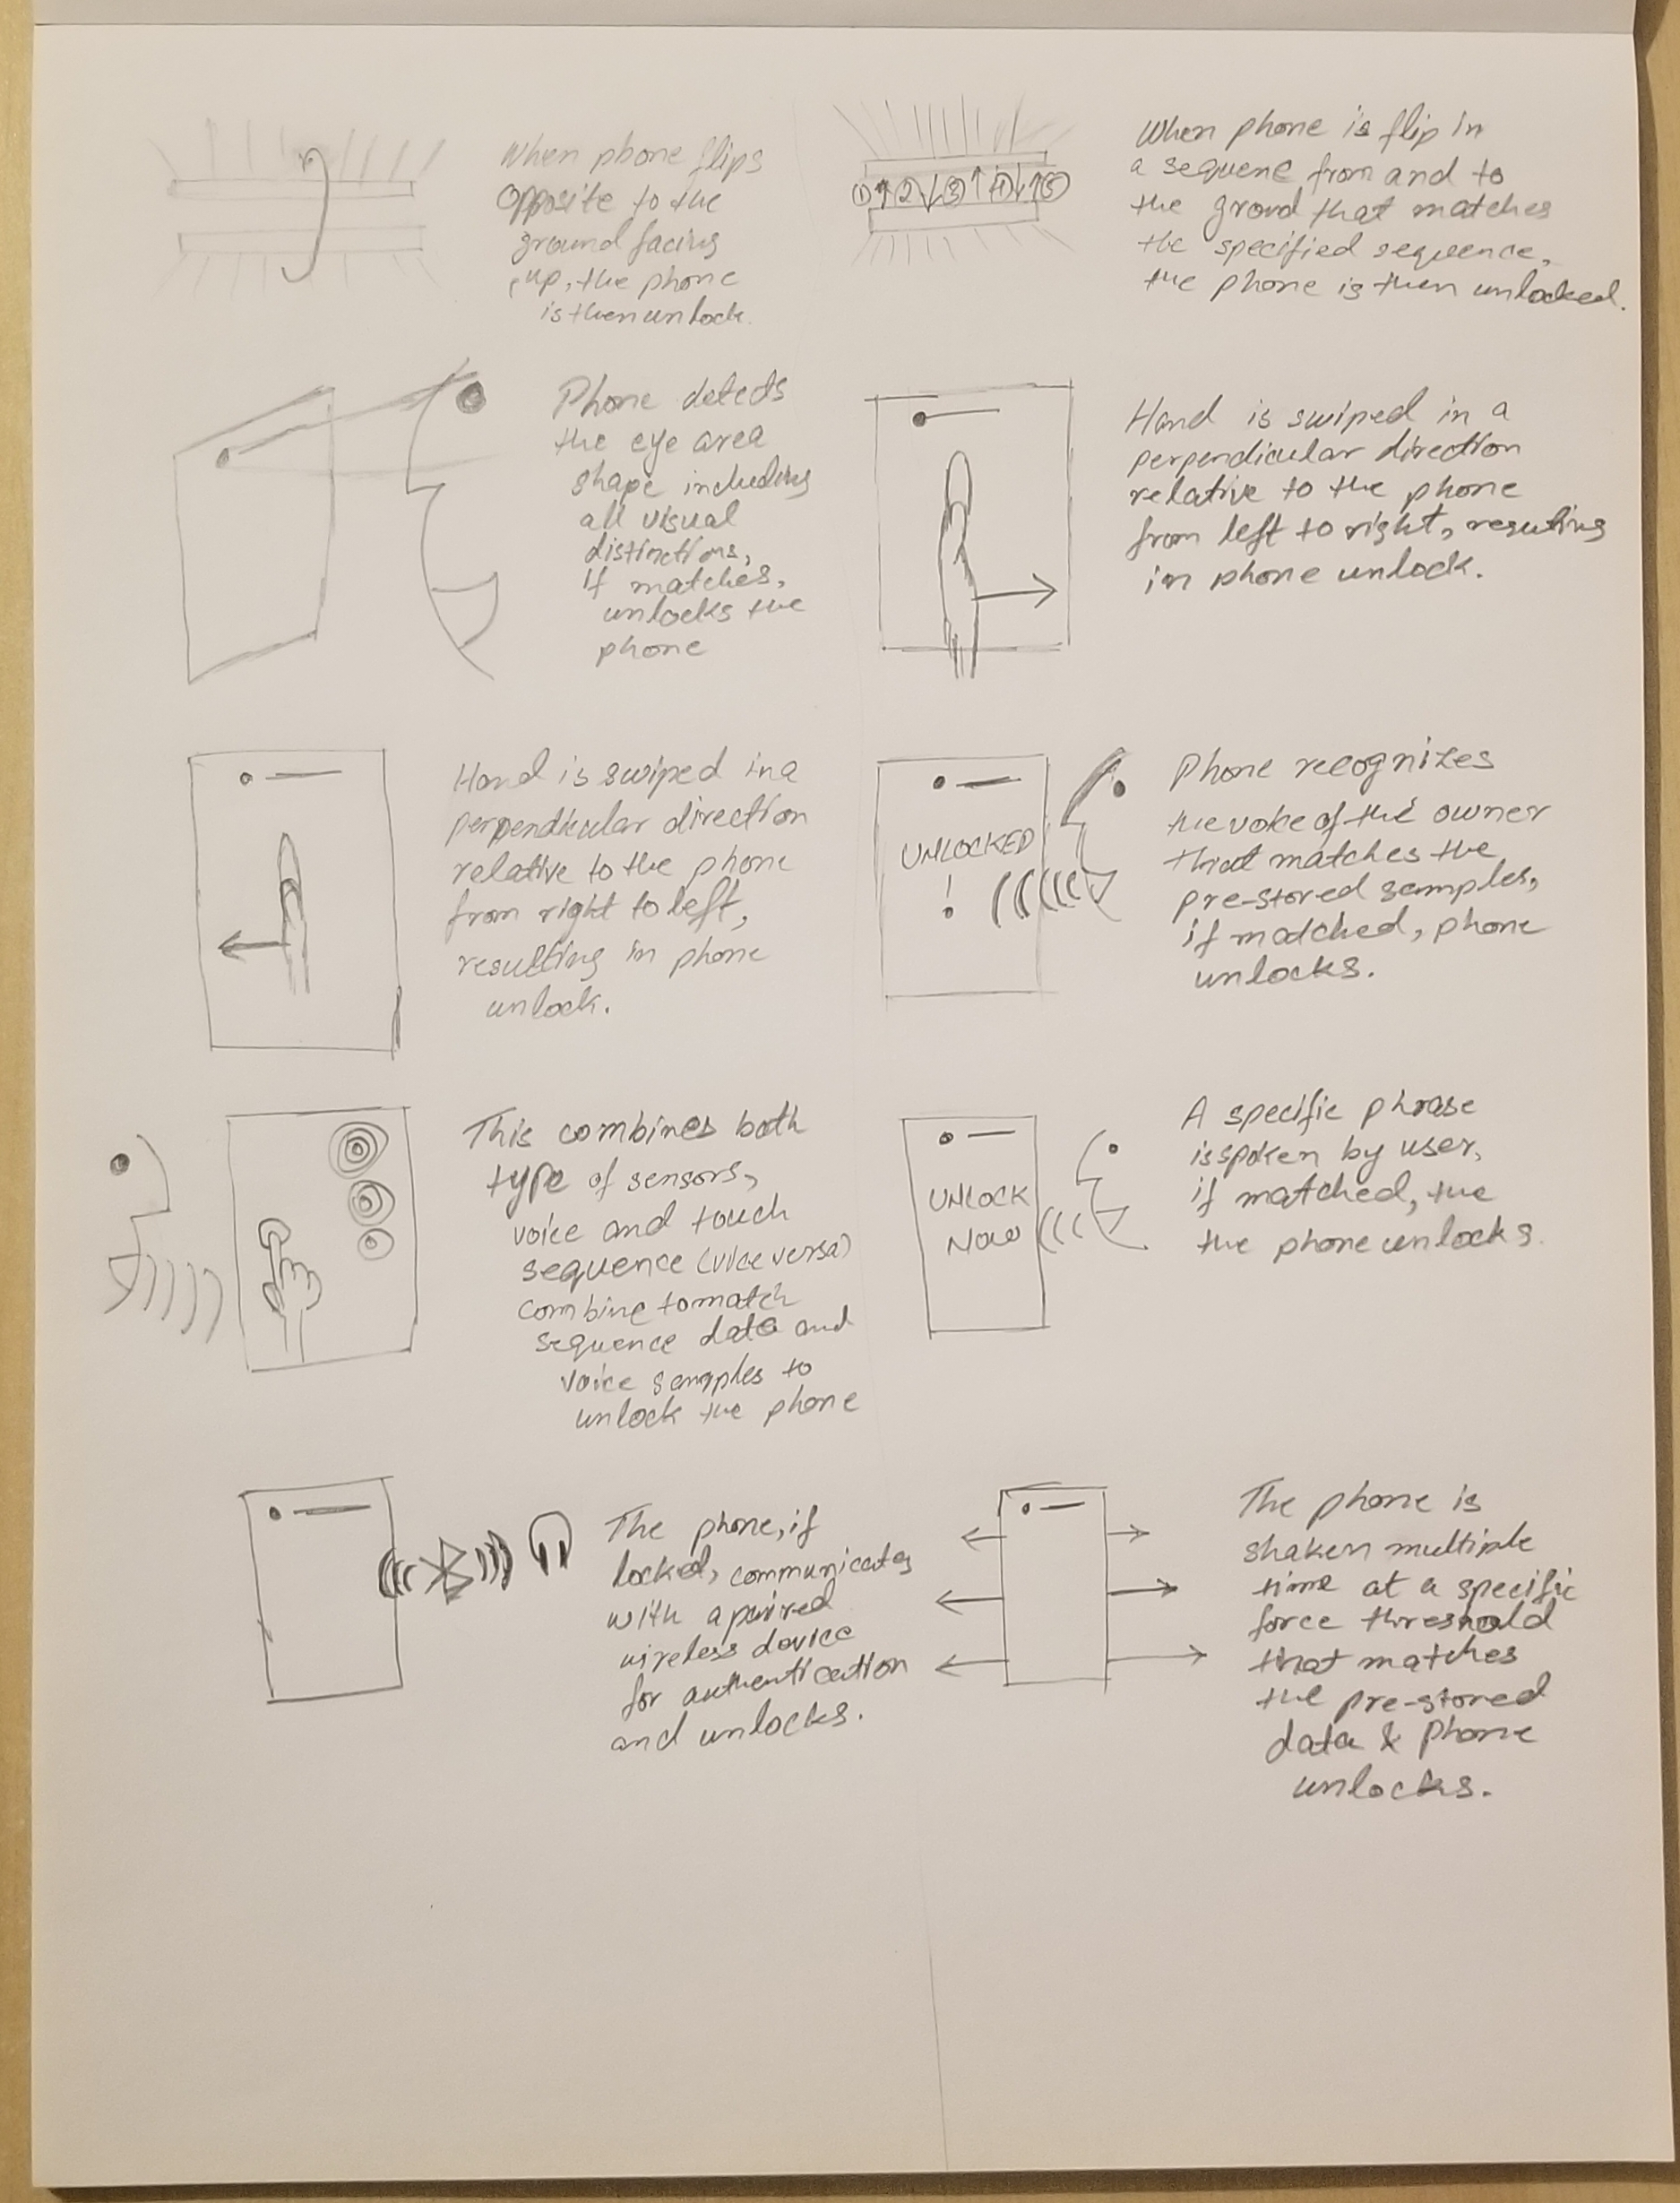 When phone flips
opposite to the
ground facing
up, the phone
is then unlock.
① ↑ 2 ↓ ③ ↑ ④ ↓ ↑ ⑤
When phone is flip in
a sequene from and to
the grond that matches
the specified sequence,
the phone is then unlocked.
Phone detects
the eye area
shape including
all visual
distinctions,
If matches,
unlocks the
phone
Hand is swiped in a
perpendicular direction
relative to the phone
from left to right, resulting
in phone unlock.
Hand is swiped in a
perpendicular direction
relative to the phone
from right to left,
resulting in phone
unlock.
UNLOCKED
!
Phone recognizes
the voice of the owner
that matches the
pre-stored samples,
if matched, phone
unlocks.
This combines both
type of sensors,
voice and touch
sequence (vice versa)
combine to match
sequence data and
voice samples to
unlock the phone
UNLOCK
NOW
A specific phrase
is spoken by user,
if matched, the
the phone unlocks.
The phone, if
locked, communicates
with a paired
wireless device
for authentication
and unlocks.
The phone is
shaken multiple
time at a specific
force threshold
that matches
the pre-stored
data & phone
unlocks.